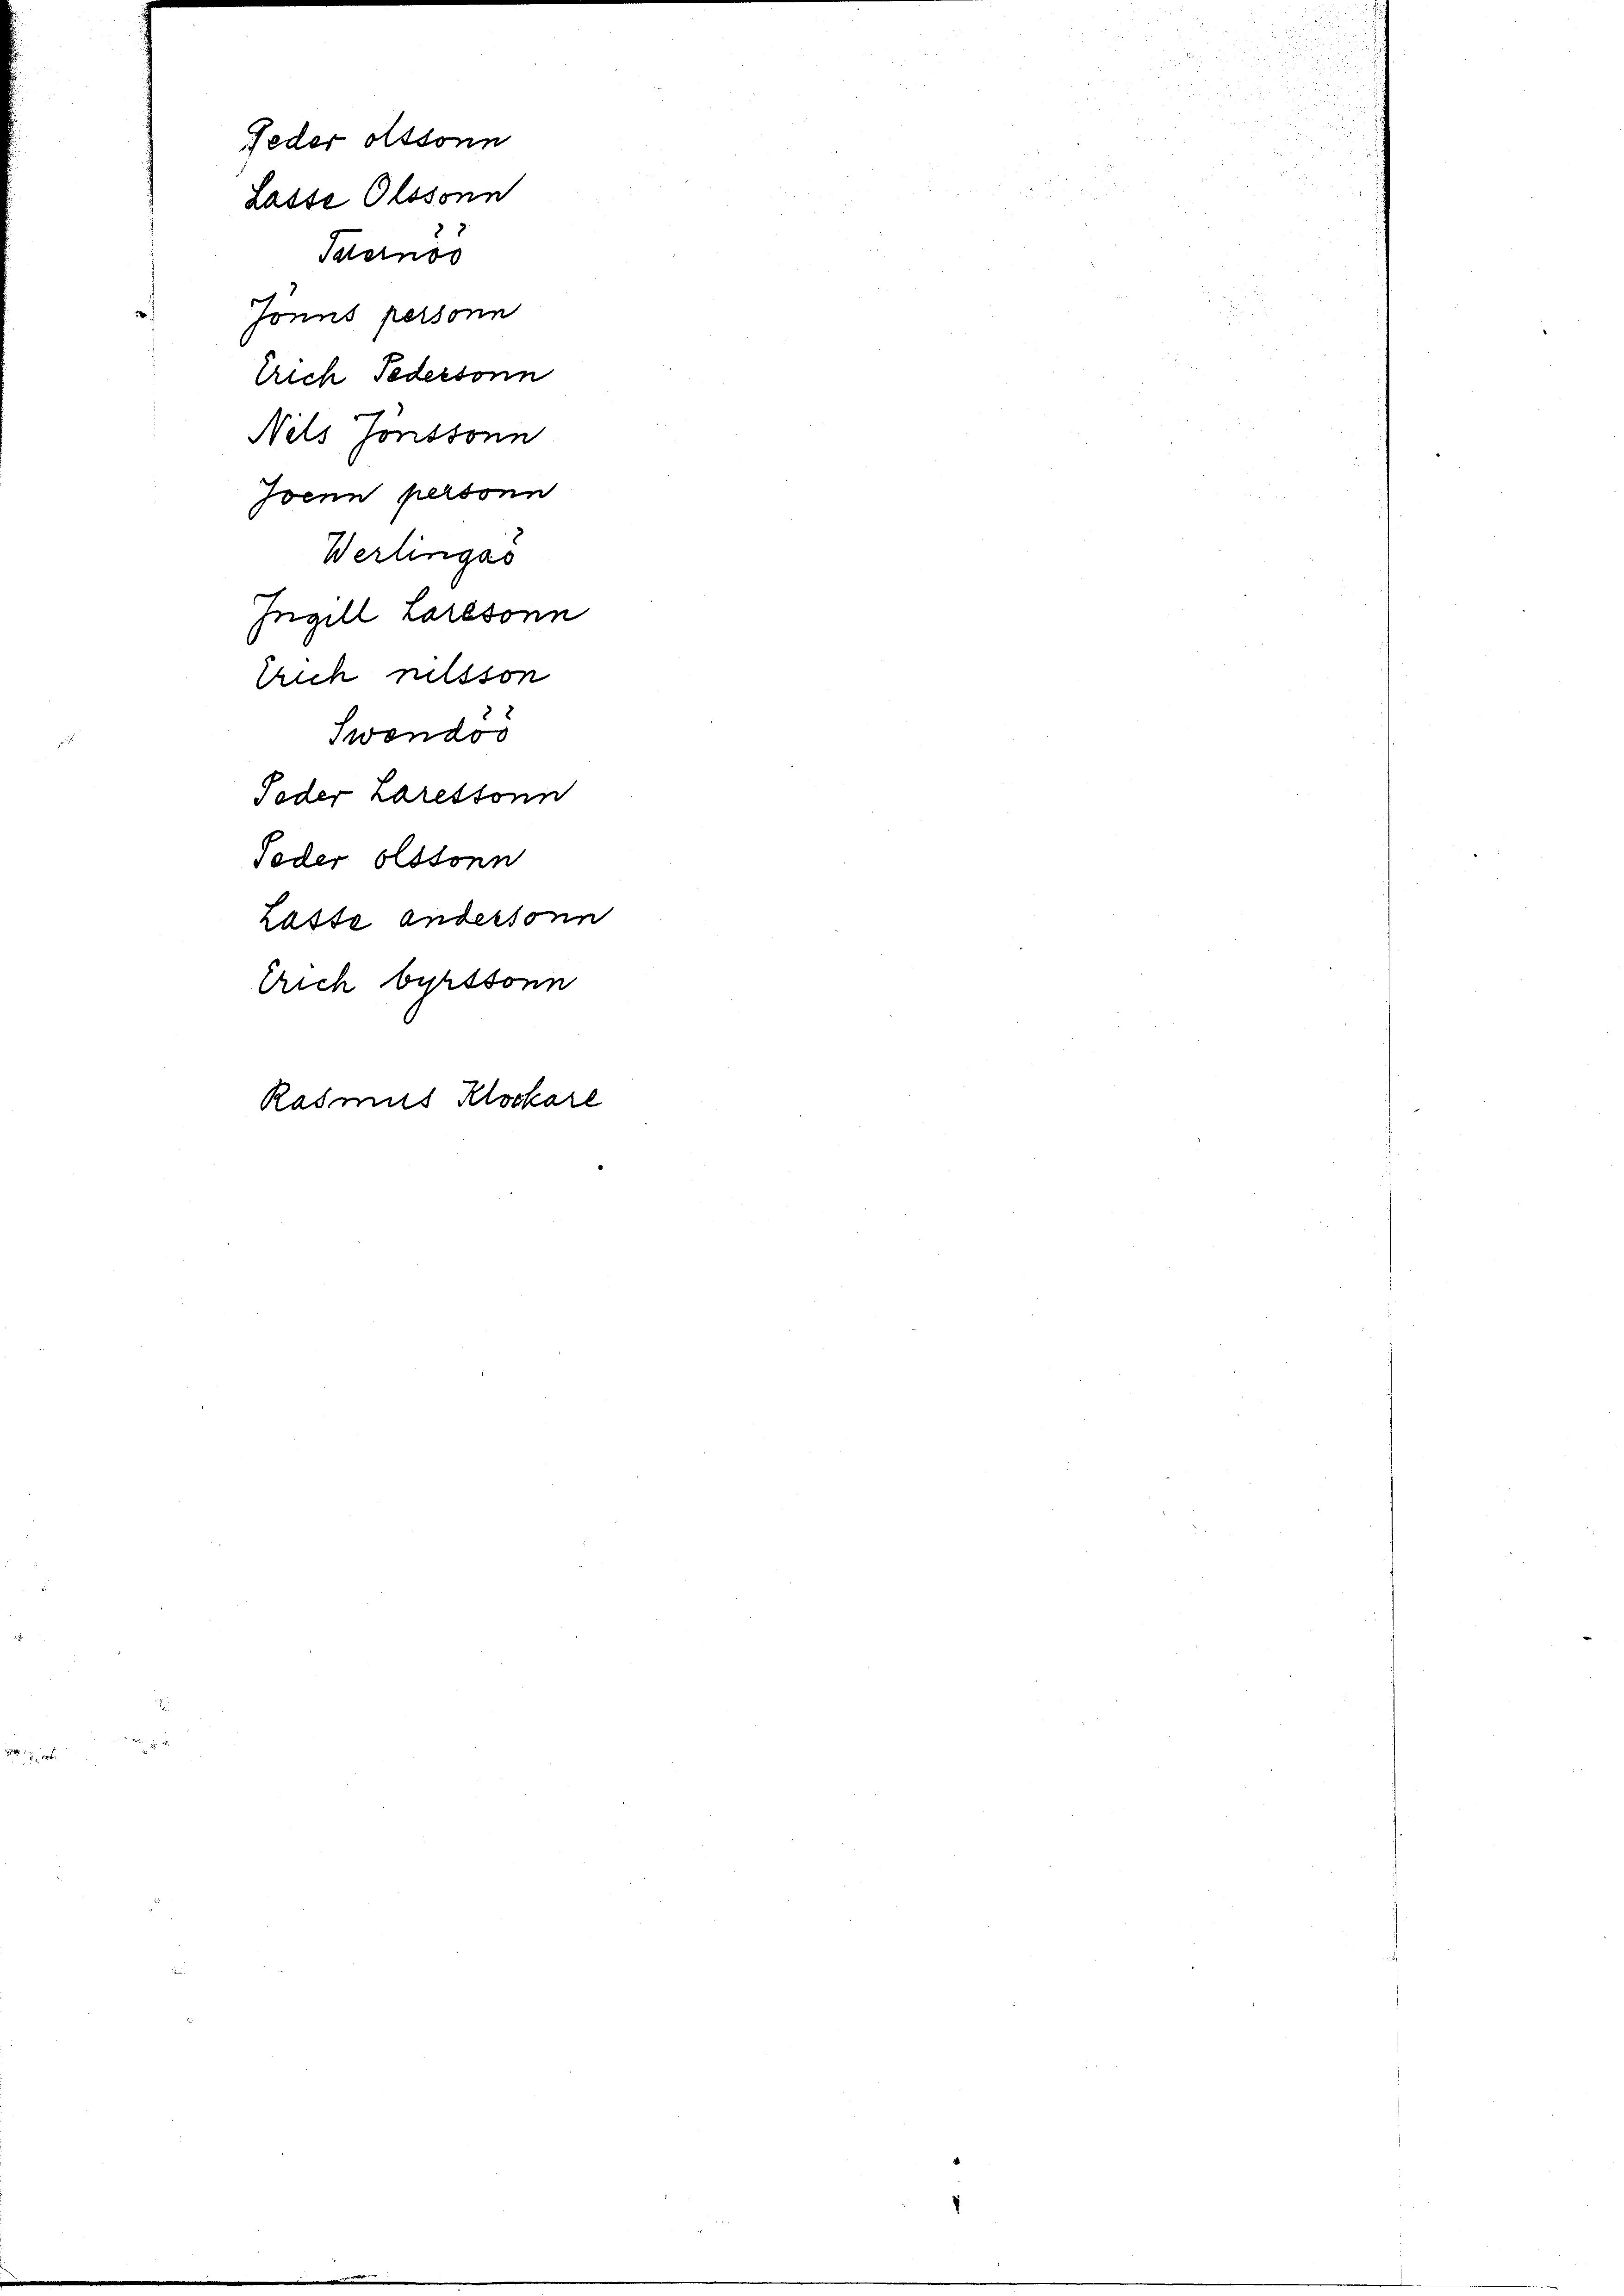 Peder olssonn
Lasse Olssonn
Jönns personn
Erich Pedersonn
Nils Jönssonn
Joenn personn
Werlingsö
Ingill Laressonn
Erich nilsson
Swendöö
Peder Laressonn
Peder olssonn
Lasse andersonn
Erich byrssonn
Rasmus Klockare